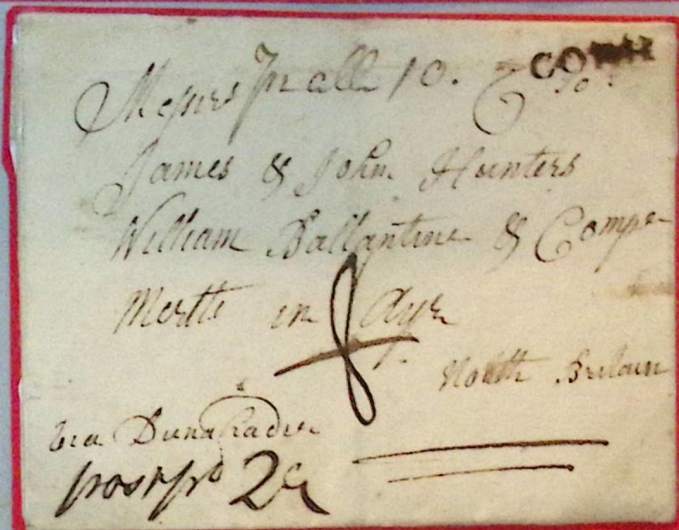 Messrs In all 10. CORK
James & John Hunters
William Ballantine & Compe
Mertts in Ayr
North Britain
via Dunaghadie
post pd 2